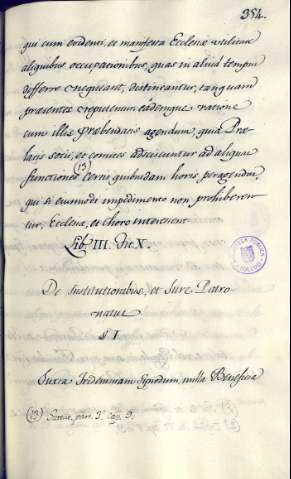 354.
qui cum evidenti, et manifesta Ecclesiæ utilitate
aliquibus occupationibus, quas in aliud tempus
differre nequeant, destineantur, tanquam
præsentes reputentur: eademque ratione
cum illis Præbendatis agendum, qui à Præ-
latis sociis, et comites adsciscuntur ad aliquas
functiones (13) certis quibusdam horis peragendas,
qui si eiusmodi impedimento non prohiberen-
tur, Ecclesiæ, et Choro interessent
Lib. III. Tit. X.
De Institutionibus, et Jure Patro-
natus
§ I
Juxta Tridentinam Synodum, nulla Beneficia
(13) par. 3. Cap. 9.